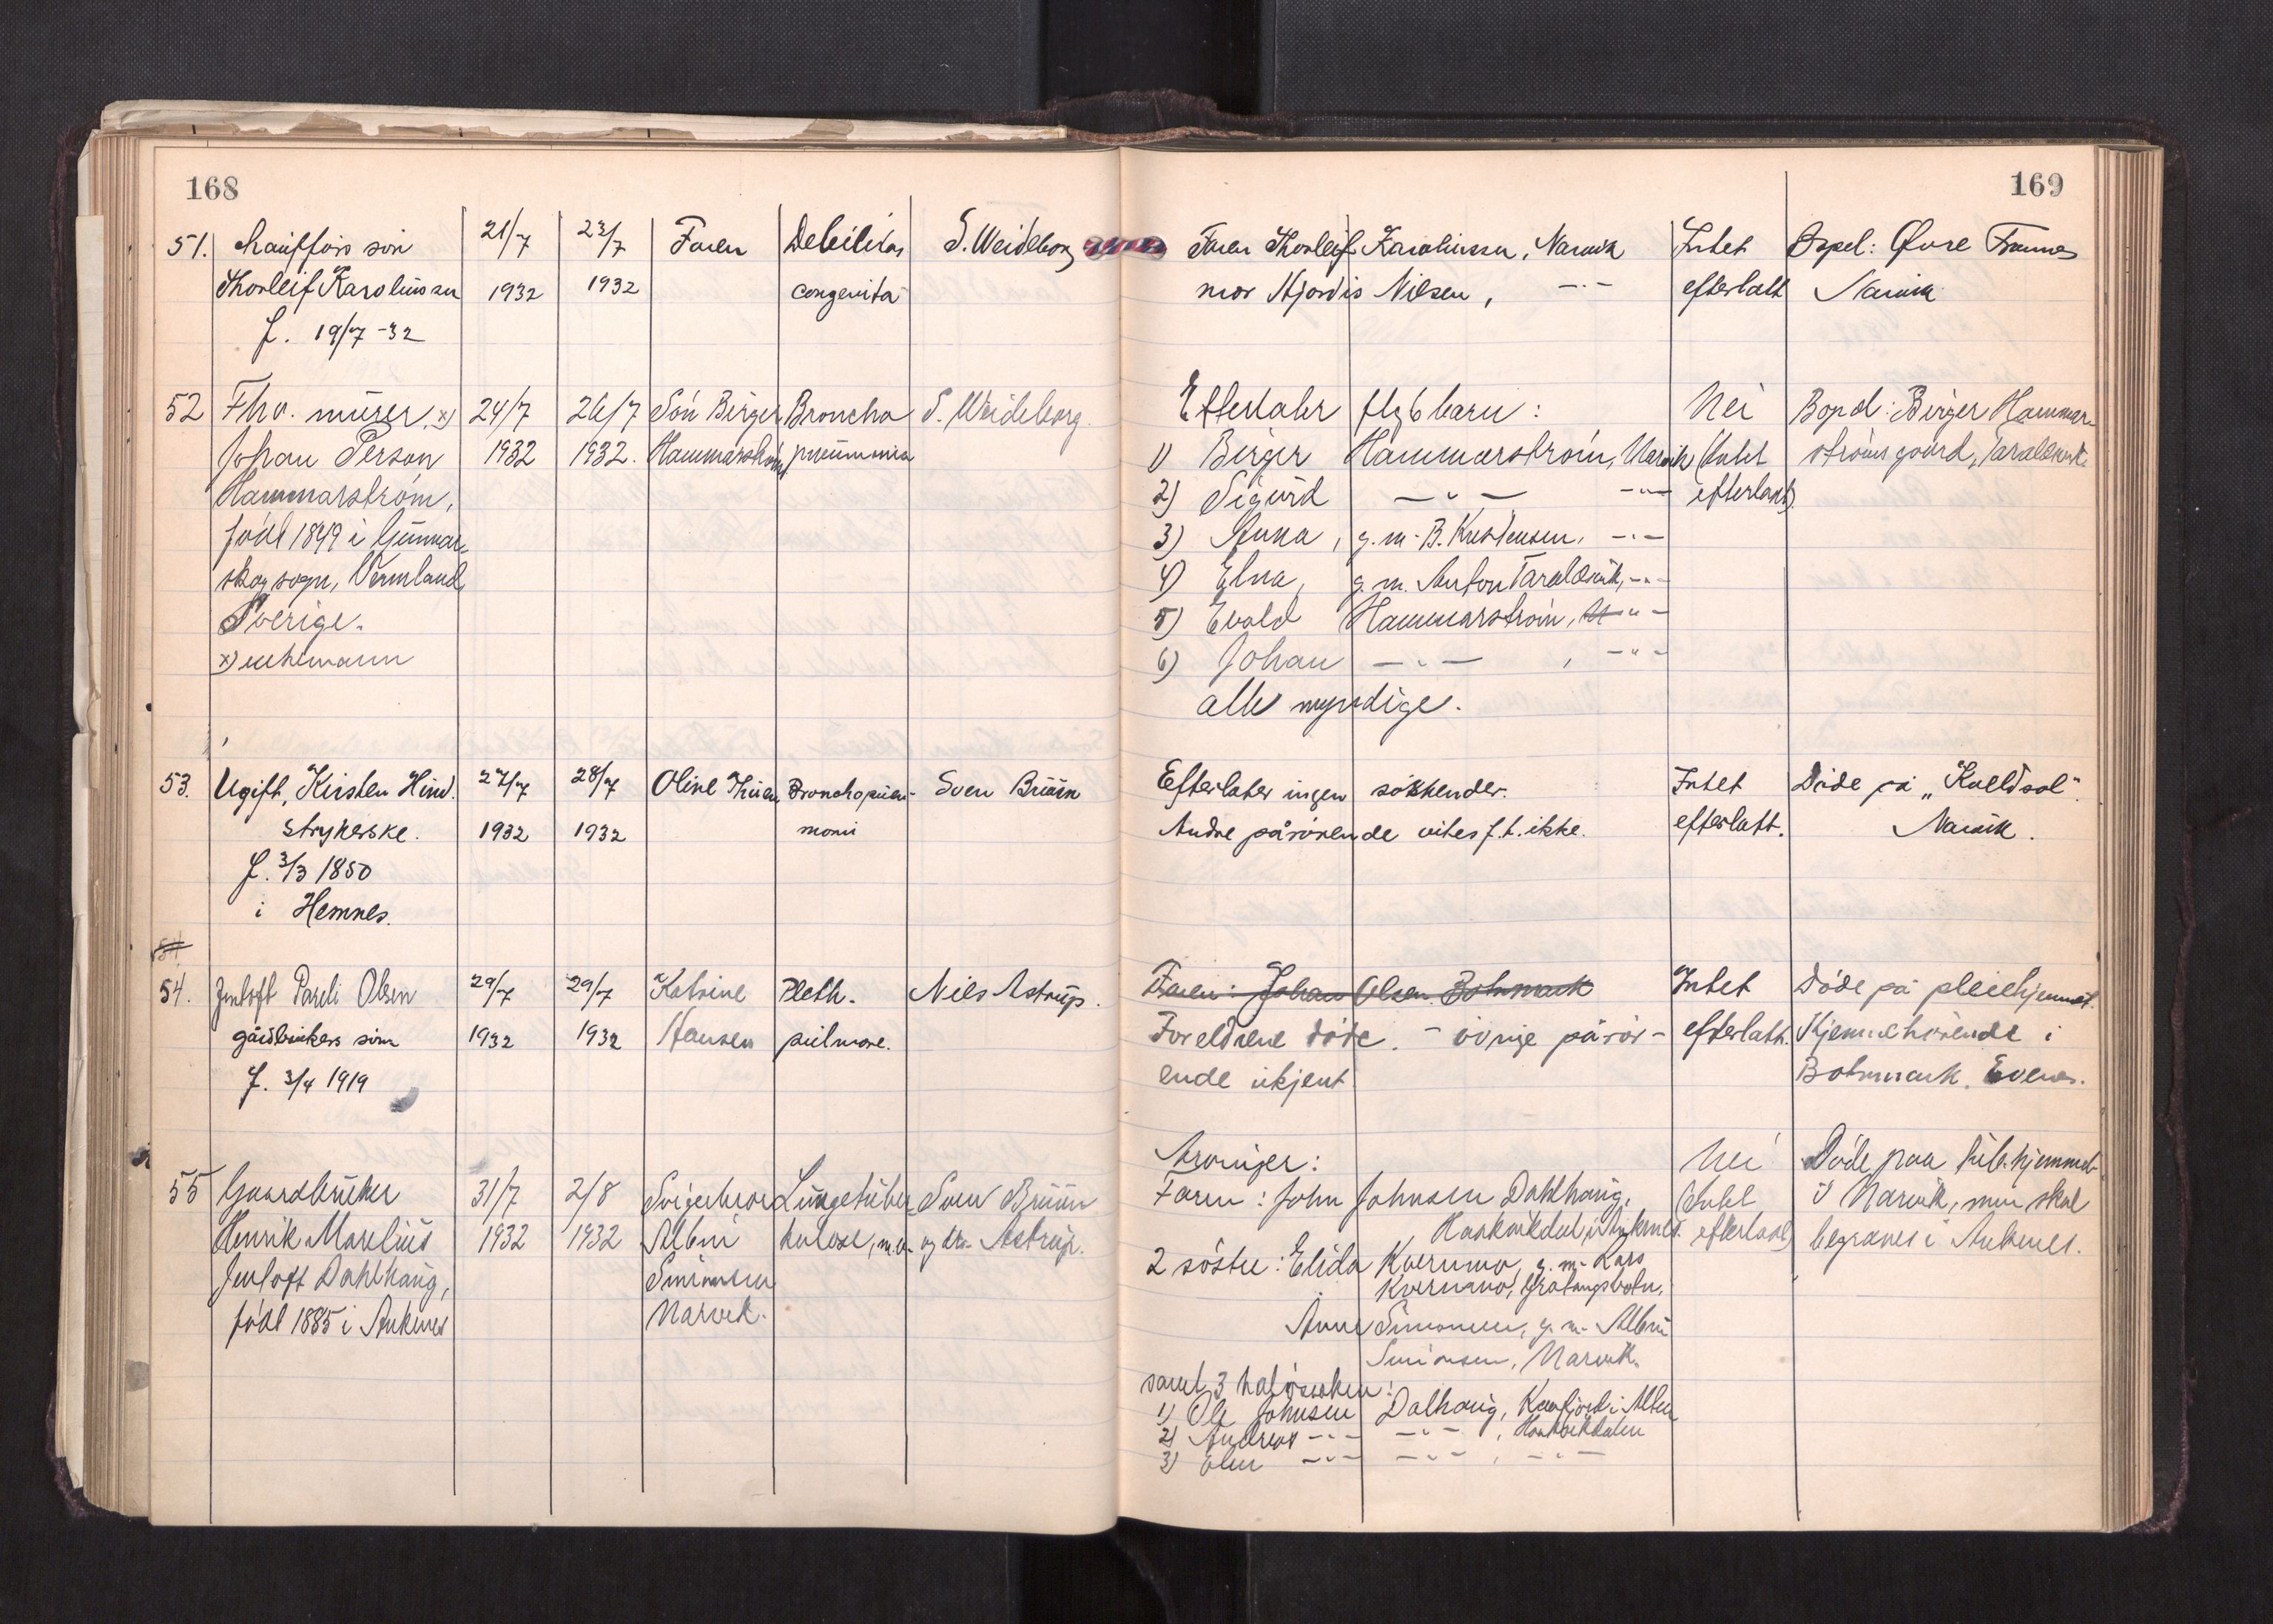 168
169
51. chaufførs søn 21/7 23/7 Faren Debilitas S. Weideborg Faren Thorleif Karolinssen, Narvik Intet Bopel: Øvre Framnes
Thorleif Karolinssen 1932 1932 congenita mor Hjordis Nilsen, -"- efterlatt Narvik
f. 19/7-32
52 Fhv. murer x) 24/7 26/7 Søn Birger Broncho S. Weideborg Efterlater flg 6 barn: Nei Bopel: Birger Hammar-
Johan Person 1932 1932. Hammarstrøm pneumonia 1) Birger Hammarstrøm, Narvik (Intet strøms gaard, Taraldsvik
Hammarstrøm, 2) Sigurd -"- -"- efterlatt)
født 1849 i Gunnar- 3) Anna, g.m. B. Kristensen, -"-
skog sogn, Vermland 4) Elna, g.m. Anton Taraldsvik, -"-
Sverige. 5) Evald Hammarstrøm, -"-
x) enkemann 6) Johan -"- , -"-
alle myndige.
53. Ugift, Kirsten Hind. 27/7 28/7 Oline Thuen Bronchopneu- Sven Bruun Efterlater ingen søskender. Intet Døde på "Kveldsol".
strykerske. 1932 1932 moni Andre pårørende vites f.t. ikke. efterlatt. Narvik.
f. 3/3 1850
i Hemnes.
54
54. Jentoft Pareli Olsen 29/7 29/7 Katrine Pleth. Niels Astrup. Faren: Johan Olsen Botnmark Intet Døde på pleiehjemmet.
gårdbrukers søn 1932 1932 Hansen pulmore. Foreldrene døde. - øvrige pårør- efterlatt. Hjemmehørende i
f. 3/4 1919 ende ukjent Botnmark, Evenes.
55 Gaardbruker 31/7 2/8 Svigerbror Lungetuber Sven Bruun Arvinger: Nei Døde paa tub.hjemmet
Henrik Marelius 1932 1932 Albin kulose, m.v. og dr. Astrup. Faren: John Johnsen Dahlhaug, (Intet i Narvik, men skal
Jentoft Dahlhaug, Simonsen Haakvikdal, i Ankenes. efterlatt) begraves i Ankenes.
født 1885 i Ankenes Narvik. 2 søstre: Elida Kvernmo, g.m. Lars
Kvernmo, Gratangsbotn,
Anna Simonsen, g.m. Albin
Simonsen, Narvik.
samt 3 halvsøsken:
1) Ole Johnsen Dalhaug, Kaafjord i Alten
2) Andreas -"- -"- , Haakvikdalen
3) Elen -"- -"- , -"-